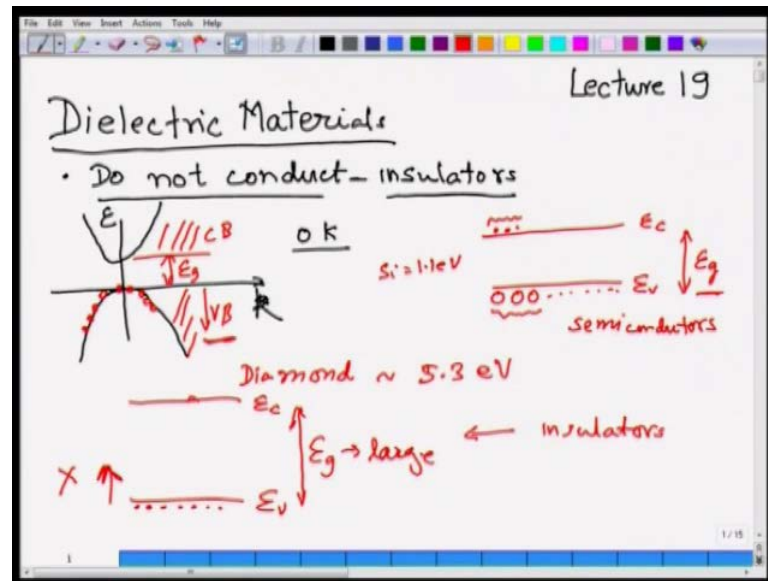 File Edit View Insert Actions Tools Help
Lecture 19
Dielectric Materials
• Do not conduct - insulators
E
//// CB
Eg
VB
k
0 K
Si = 1.1 eV
Ec
Eg
Ev
semicondutors
Diamond ~ 5.3 eV
Ec
Eg → large
← insulators
X ↑
Ev
1/15
1